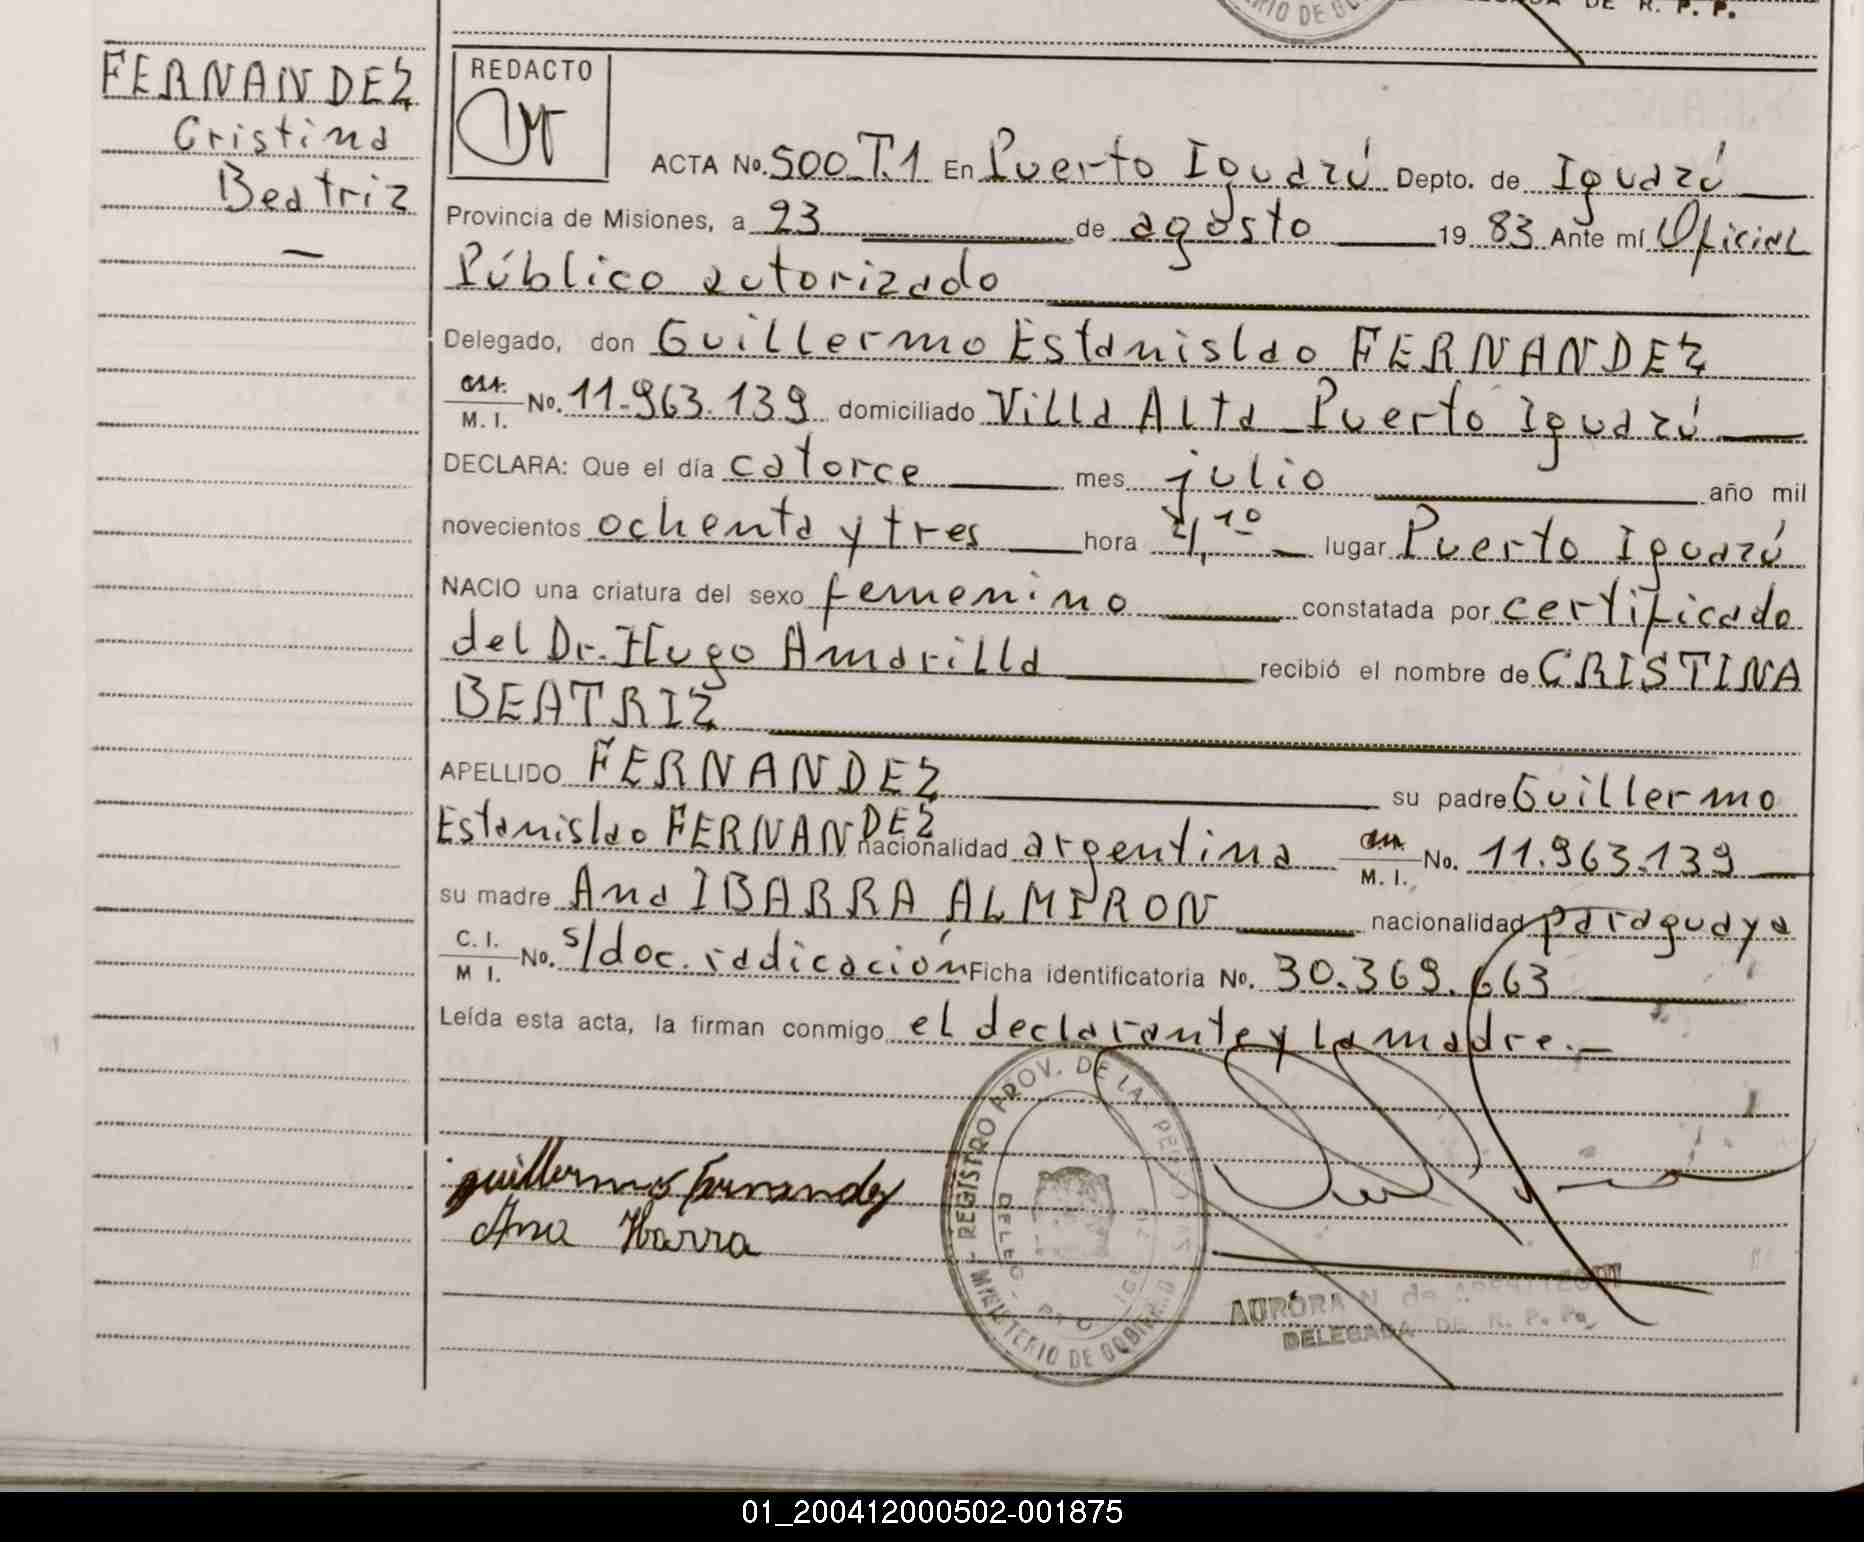 DE R. P. P.
FERNANDEZ
Cristina
Beatriz
REDACTO
ACTA No. 500 T.1 En Puerto Iguazú Depto. de Iguazú
Provincia de Misiones, a 23 de agosto 19 83 Ante mí Oficial
Público autorizado
Delegado, don Guillermo Estanislao FERNANDEZ
M. I. No. 11.963.139 domiciliado Villa Alta Puerto Iguazú
DECLARA: Que el día catorce mes julio año mil
novecientos ochenta y tres hora 4,10 lugar Puerto Iguazú
NACIO una criatura del sexo femenino constatada por certificado
del Dr. Hugo Amarilla recibió el nombre de CRISTINA
BEATRIZ
APELLIDO FERNANDEZ su padre Guillermo
Estanislao FERNANDEZ nacionalidad argentina M. I. No. 11.963.139
su madre Ana IBARRA ALMIRON nacionalidad paraguaya
C. I. M I. No. s/doc. radicación Ficha identificatoria No. 30.369.663
Leída esta acta, la firman conmigo el declarante y la madre.-
guillermo fernandez
Ana Ibarra
REGISTRO PROV. DE LAS PERSONAS
MINISTERIO DE GOBIERNO
AURORA N de
DELEGADA DE R. P. P.
01_200412000502-001875